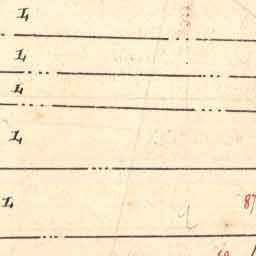 L
L
L
L
L
87